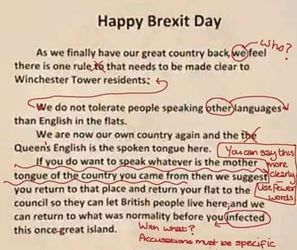 Happy Brexit Day
Who?
As we finally have our great country back we feel
there is one rule to that needs to be made clear to
Winchester Tower residents:
We do not tolerate people speaking other languages
than English in the flats.
We are now our own country again and the the
Queen's English is the spoken tongue here.
You can say this
more
clearly
Use fewer
words
If you do want to speak whatever is the mother
tongue of the country you came from then we suggest
you return to that place and return your flat to the
council so they can let British people live here and we
can return to what was normality before you infected
this once great island.
With what?
Accusations must be specific